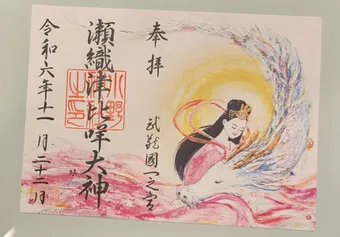 奉拝
武蔵國一之宮
瀬織津比咩大神
令和六年十一月二十二日